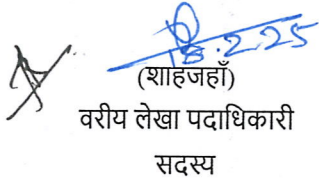 18.2.25
(शाहजहाँ)
वरीय लेखा पदाधिकारी
सदस्य